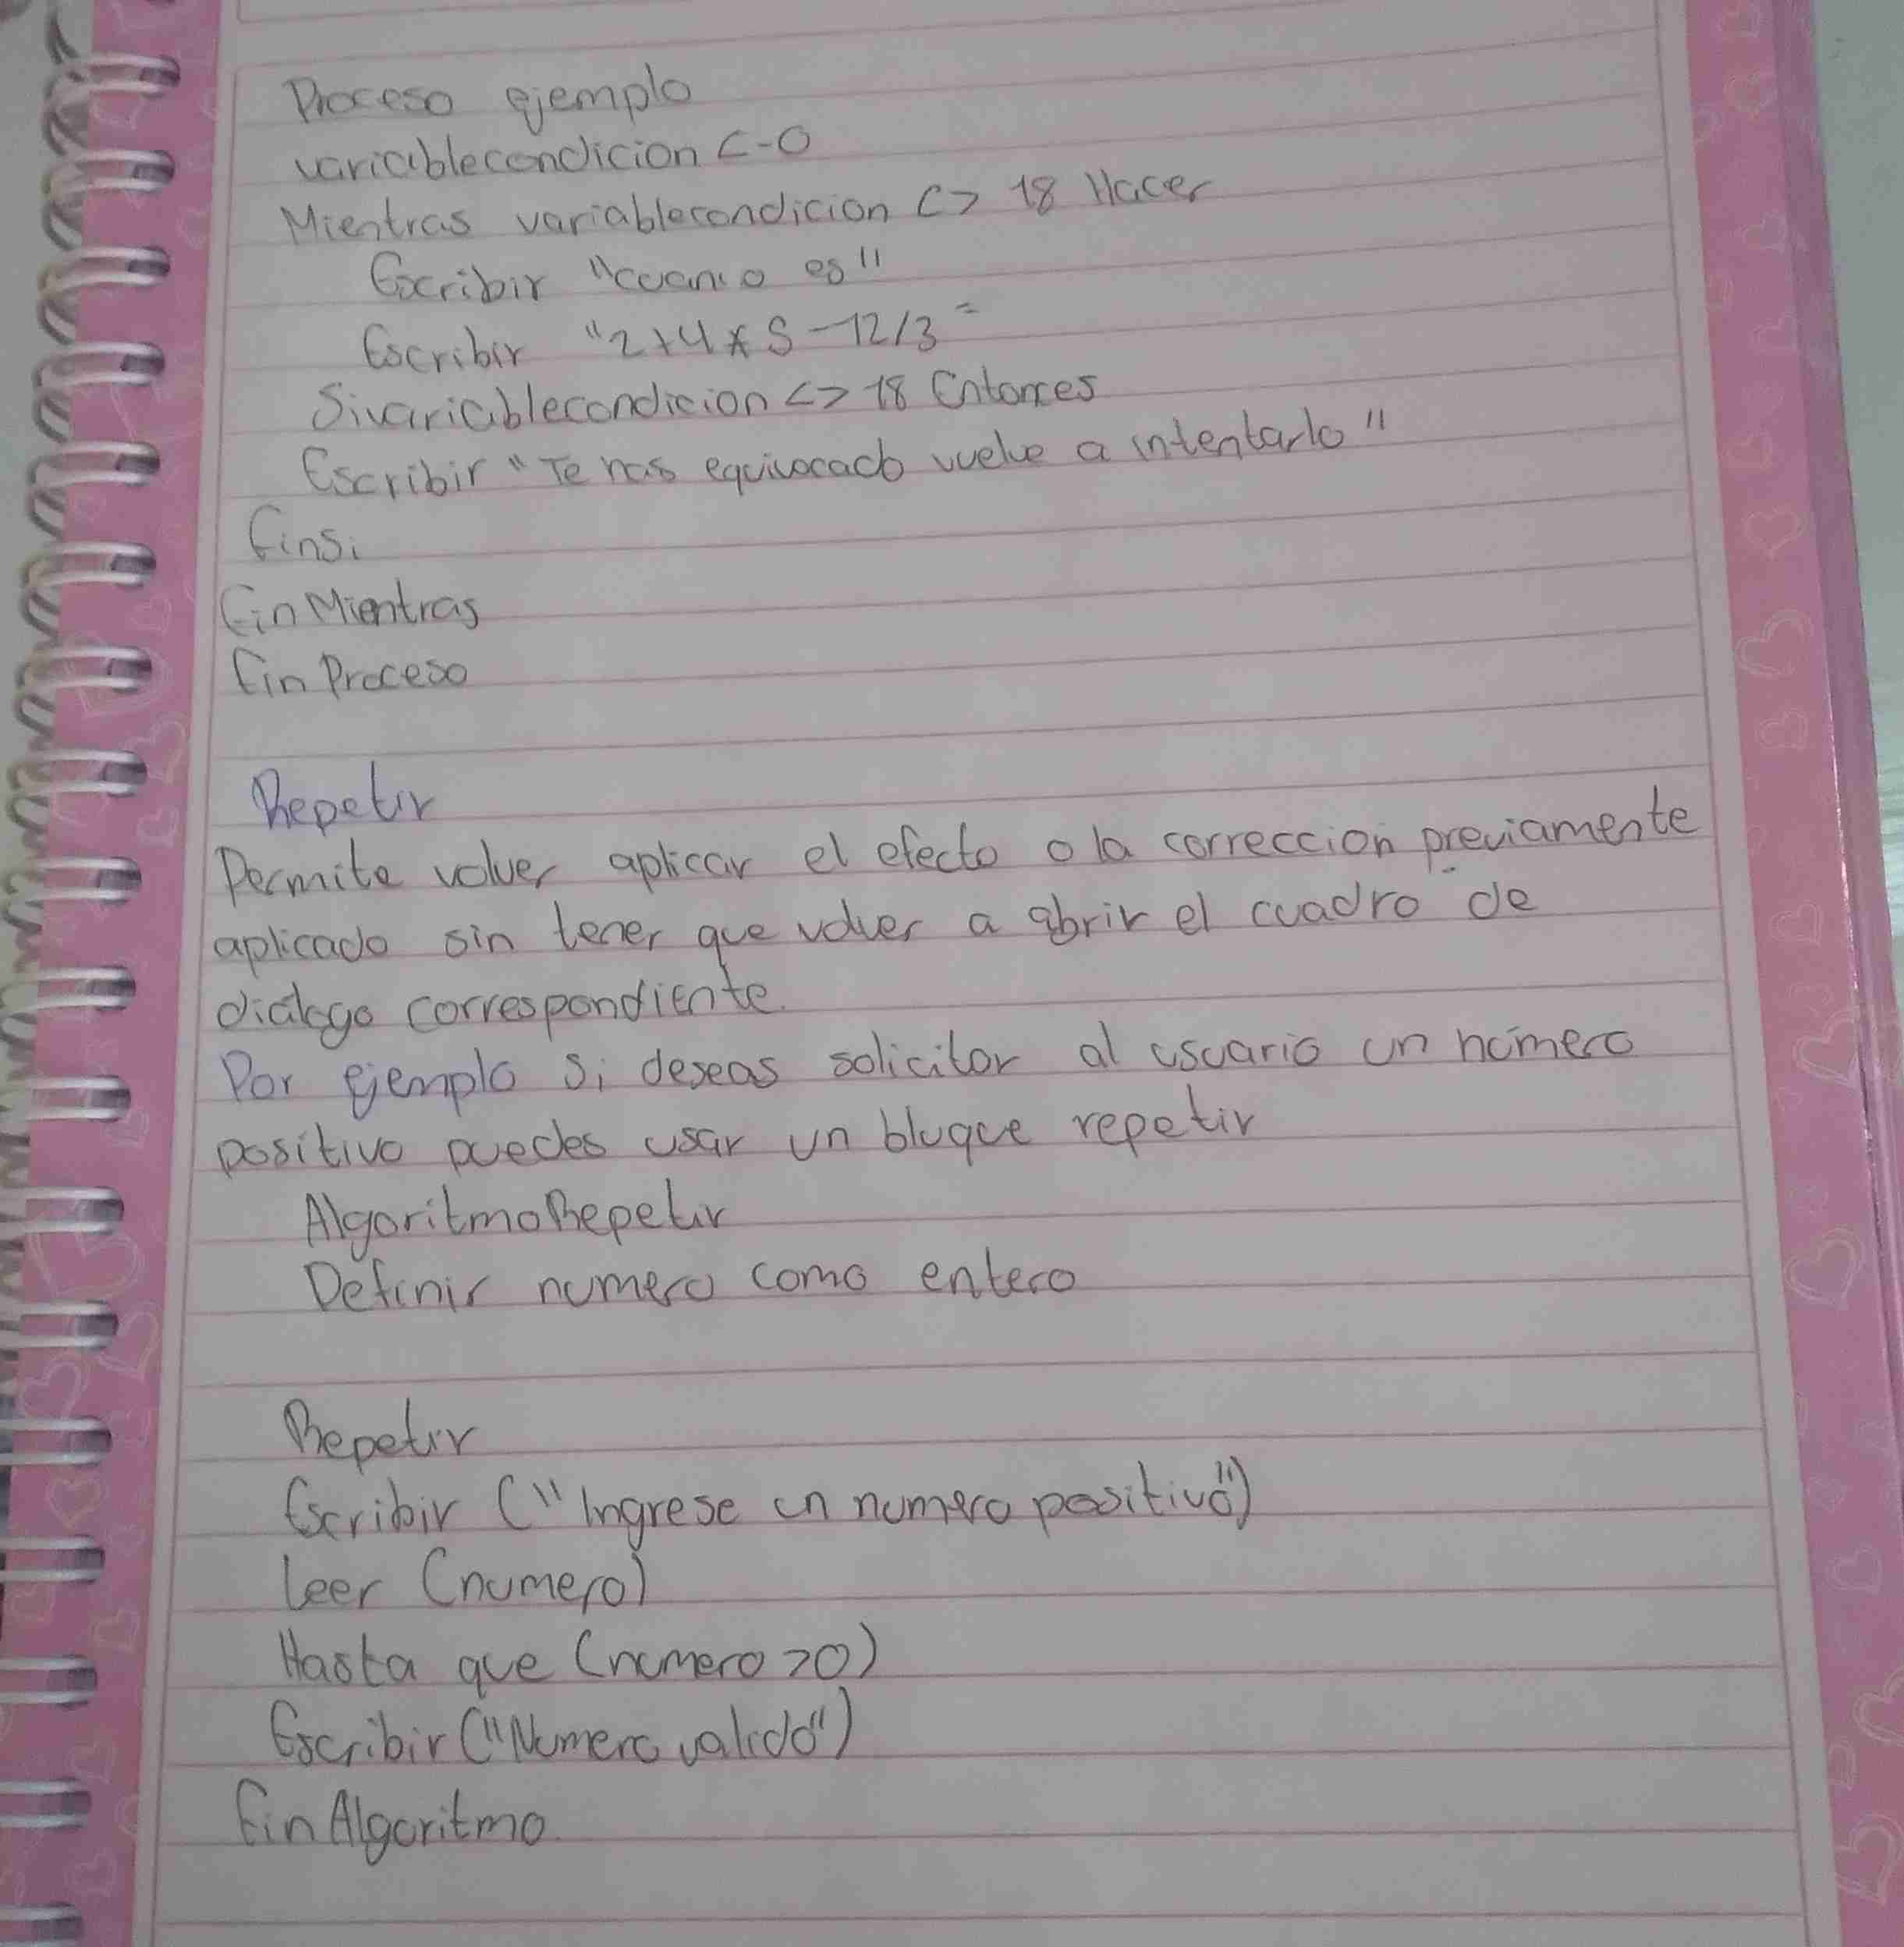 Proceso ejemplo
variablecondicion <-0
Mientras variablecondicion <> 18 Hacer
Escribir "cuanto es"
Escribir "2+4*5-12/3"
Sivariablecondicion <> 18 Entonces
Escribir "Te has equivocado vuelve a intentarlo"
Finsi
FinMientras
Fin Proceso
Repetir
Permite volver aplicar el efecto o la correccion previamente
aplicado sin tener que volver a abrir el cuadro de
dialogo correspondiente.
Por ejemplo si deseas solicitar al usuario un número
positivo puedes usar un bluque repetir
AlgoritmoRepetir
Definir numero como entero
Repetir
Escribir ("Ingrese un numero positivo")
Leer (numero)
Hasta que (numero >0)
Escribir ("Numero valido")
Fin Algoritmo